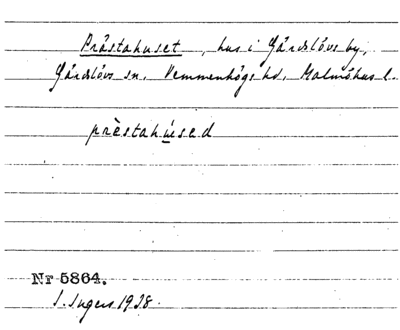 Prästahuset, hus i Gärdslövs by,
Gärdslövs sn, Vemmenhögs hd, Malmöhus l.
prèstahúsed
Nr 5864.
S. Ingers 1928.